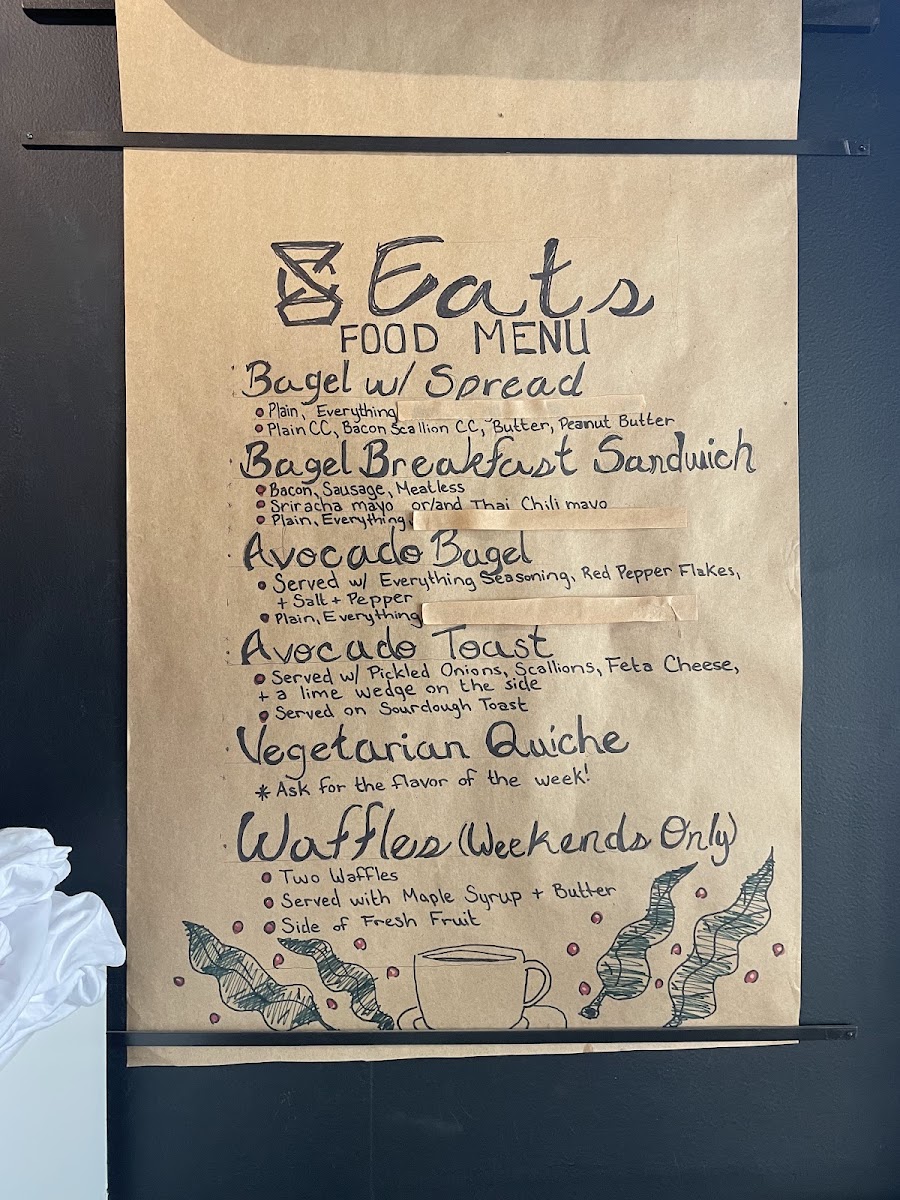 Eats
FOOD MENU
Bagel w/ Spread
Plain, Everything
Plain CC, Bacon Scallion CC, Butter, Peanut Butter
Bagel Breakfast Sandwich
Bacon, Sausage, Meatless
Sriracha mayo or/and Thai Chili mayo
Plain, Everything
Avocado Bagel
Served w/ Everything Seasoning, Red Pepper Flakes,
+ Salt + Pepper
Plain, Everything
Avocado Toast
Served w/ Pickled Onions, Scallions, Feta Cheese,
+ a lime wedge on the side
Served on Sourdough Toast
Vegetarian Quiche
* Ask for the flavor of the week!
Waffles (Weekends Only)
Two Waffles
Served with Maple Syrup + Butter
Side of Fresh Fruit